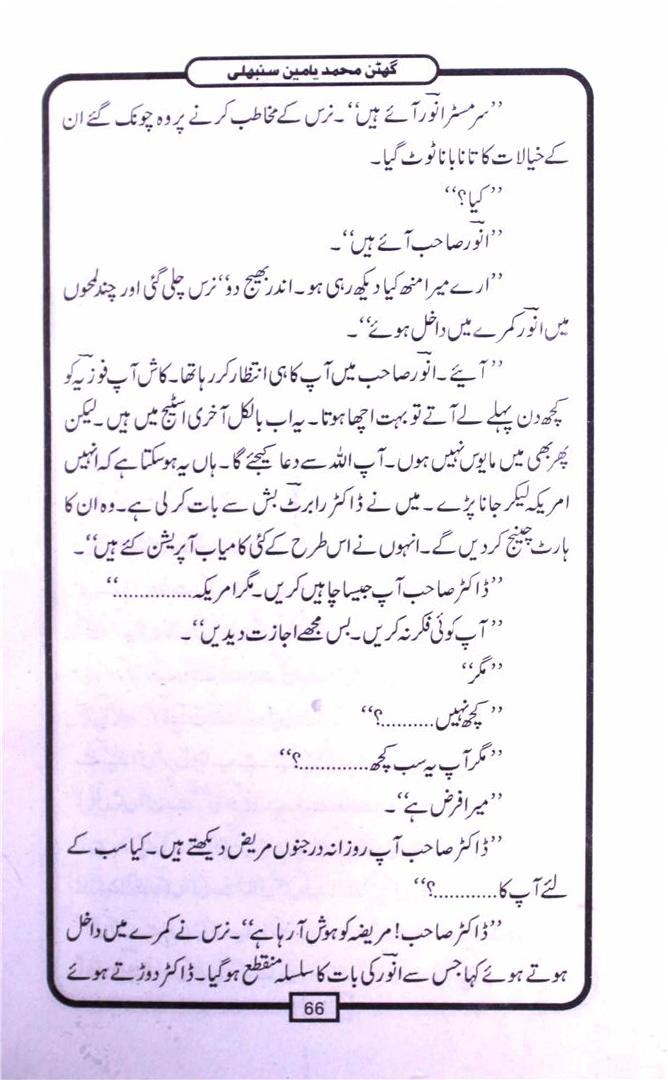 گھٹن محمد یامین سنبھلی
’’سر مسٹر انورؔ آئے ہیں‘‘۔ نرس کے مخاطب کرنے پر وہ چونک گئے ان
کے خیالات کا تانا بانا ٹوٹ گیا۔
’’کیا؟‘‘
’’انورؔ صاحب آئے ہیں‘‘۔
’’ارے میرا منھ کیا دیکھ رہی ہو۔ اندر بھیج دو‘‘ نرس چلی گئی اور چند لمحوں
میں انورؔ کمرے میں داخل ہوئے‘‘۔
’’آیئے۔ انورؔ صاحب میں آپ کا ہی انتظار کر رہا تھا۔ کاش آپ فوزیہؔ کو
کچھ دن پہلے لے آتے تو بہت اچھا ہوتا۔ یہ اب بالکل آخری اسٹیج میں ہیں۔ لیکن
پھر بھی میں مایوس نہیں ہوں۔ آپ اللہ سے دعا کیجئے گا۔ ہاں یہ ہوسکتا ہے کہ انہیں
امریکہ لیکر جانا پڑے۔ میں نے ڈاکٹر رابرٹؔ بش سے بات کر لی ہے۔ وہ ان کا
ہارٹ چینج کر دیں گے۔ انہوں نے اس طرح کے کئی کامیاب آپریشن کئے ہیں‘‘۔
’’ڈاکٹر صاحب آپ جیسا چاہیں کریں۔ مگر امریکہ............‘‘
’’آپ کوئی فکر نہ کریں۔ بس مجھے اجازت دیدیں‘‘۔
’’مگر‘‘
’’کچھ نہیں..........؟‘‘
’’مگر آپ یہ سب کچھ............؟‘‘
’’میرا فرض ہے‘‘۔
’’ڈاکٹر صاحب آپ روزانہ درجنوں مریض دیکھتے ہیں۔ کیا سب کے
لئے آپ کا..........؟‘‘
’’ڈاکٹر صاحب! مریضہ کو ہوش آ رہا ہے‘‘۔ نرس نے کمرے میں داخل
ہوتے ہوئے کہا جس سے انورؔ کی بات کا سلسلہ منقطع ہوگیا۔ ڈاکٹر دوڑتے ہوئے
66